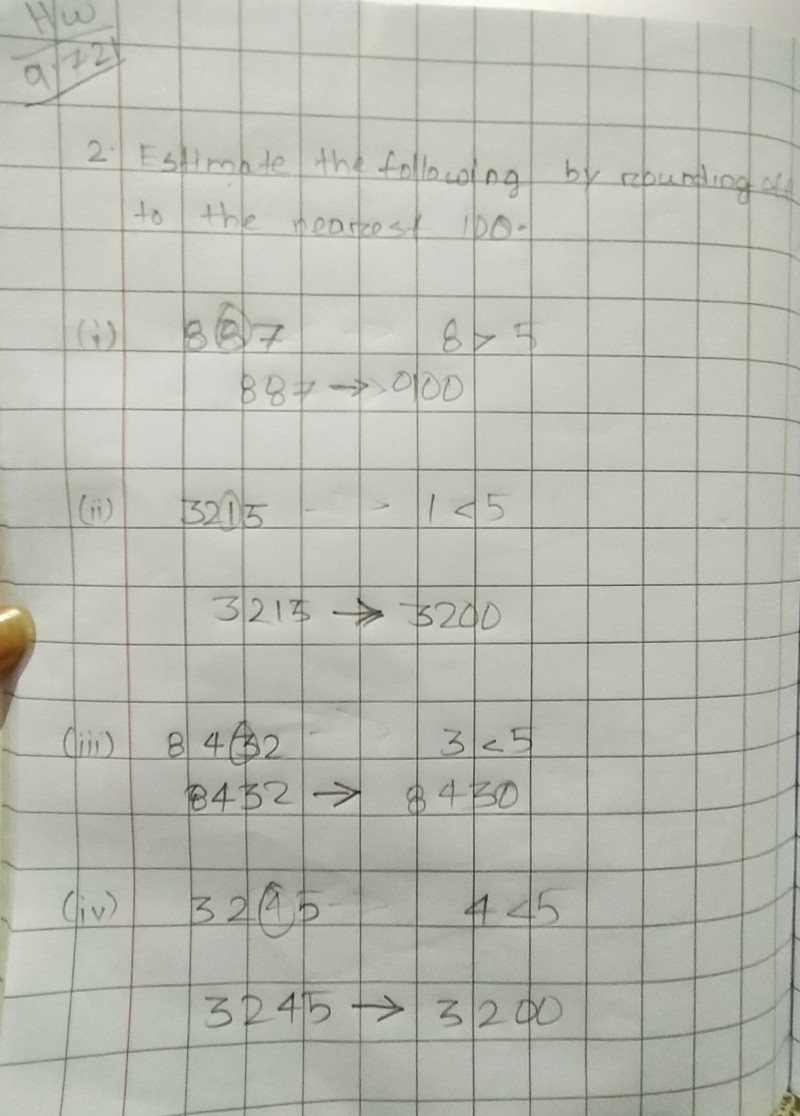 HW
9.7.21
2. Estimate the following by rounding off
to the nearest 100.
(i) 887 8 > 5
887 → 0100
(ii) 3215 1 < 5
3215 → 3200
(iii) 8432 3 < 5
8432 → 8430
(iv) 3245 4 < 5
3245 → 3200